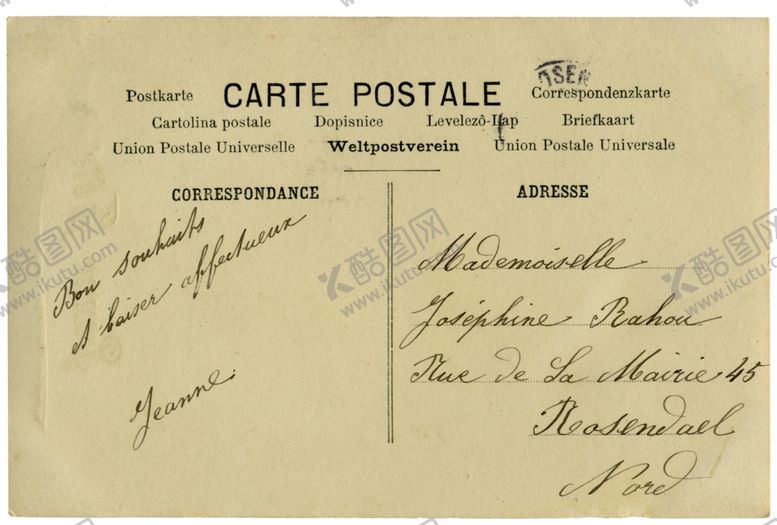 OSEN
CARTE POSTALE
Postkarte
Correspondenzkarte
Cartolina postale Dopisnice Levelező-Lap Briefkaart
Union Postale Universelle Weltpostverein Union Postale Universale
CORRESPONDANCE
Bon souhaits
et baiser affectueux
Jeanne.
ADRESSE
Mademoiselle
Joséphine Rahou
Rue de La Mairie 45
Rosendael
Nord
酷图网
www.ikutu.com